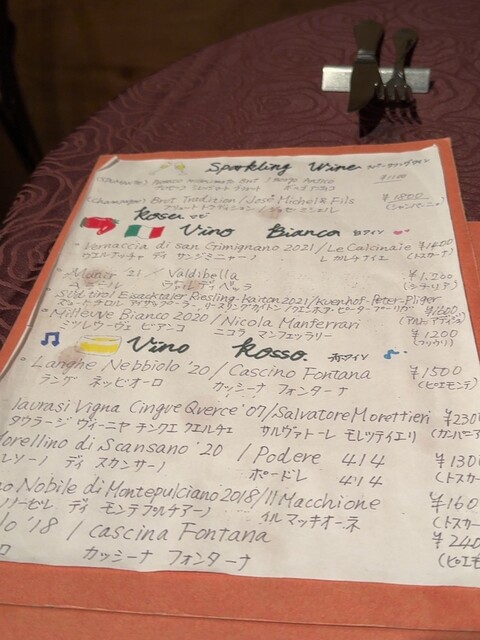 Sparkling Wine スパークリングワイン
¥1100
(Champagne) Brut Tradition / José Michel & Fils ¥1800
ブリュット トラディション / ジョセ ミッシェル (シャンパーニュ)
Rosei
Vino Bianco 白ワイン
・Vernaccia di san Gimignano 2021 / Le Calcinaie ¥1400
ヴェルナッチャ ディ サンジミニャーノ レ カルチナイエ (トスカーナ)
'21 / Valdibella ¥1,200
ヴァルディベッラ (シチリア)
・Südtirol Eisacktaler Riesling Kaiton 2021 / Kuenhof-Peter-Pliger ¥1600
・Milleuve Bianco 2020 / Nicola Manferrari ¥1,200
ミッレウーヴェ ビアンコ ニコラ マンフェッラーリ (フリウリ)
Vino Rosso 赤ワイン
・Langhe Nebbiolo '20 / Cascino Fontana ¥1500
ランゲ ネッビオーロ カッシーナ フォンターナ (ピエモンテ)
aurasi Vigna Cinque Querce '07 / Salvatore Morettieri ¥230
タウラージ ヴィーニャ チンクエ クエルチェ サルヴァトーレ モレッティエリ (カンパニア
orellino di Scansano '20 / Podere 414 ¥130
レリーノ ディ スカンサーノ ポードレ 414 (トスカ
no Nobile di Montepulciano 2018 / Il Macchione ¥160
ノービレ ディ モンテプルチアーノ イル マッキオーネ (トスカー
lo '18 / cascina Fontana ¥240
ロ カッシーナ フォンターナ (ピエモ